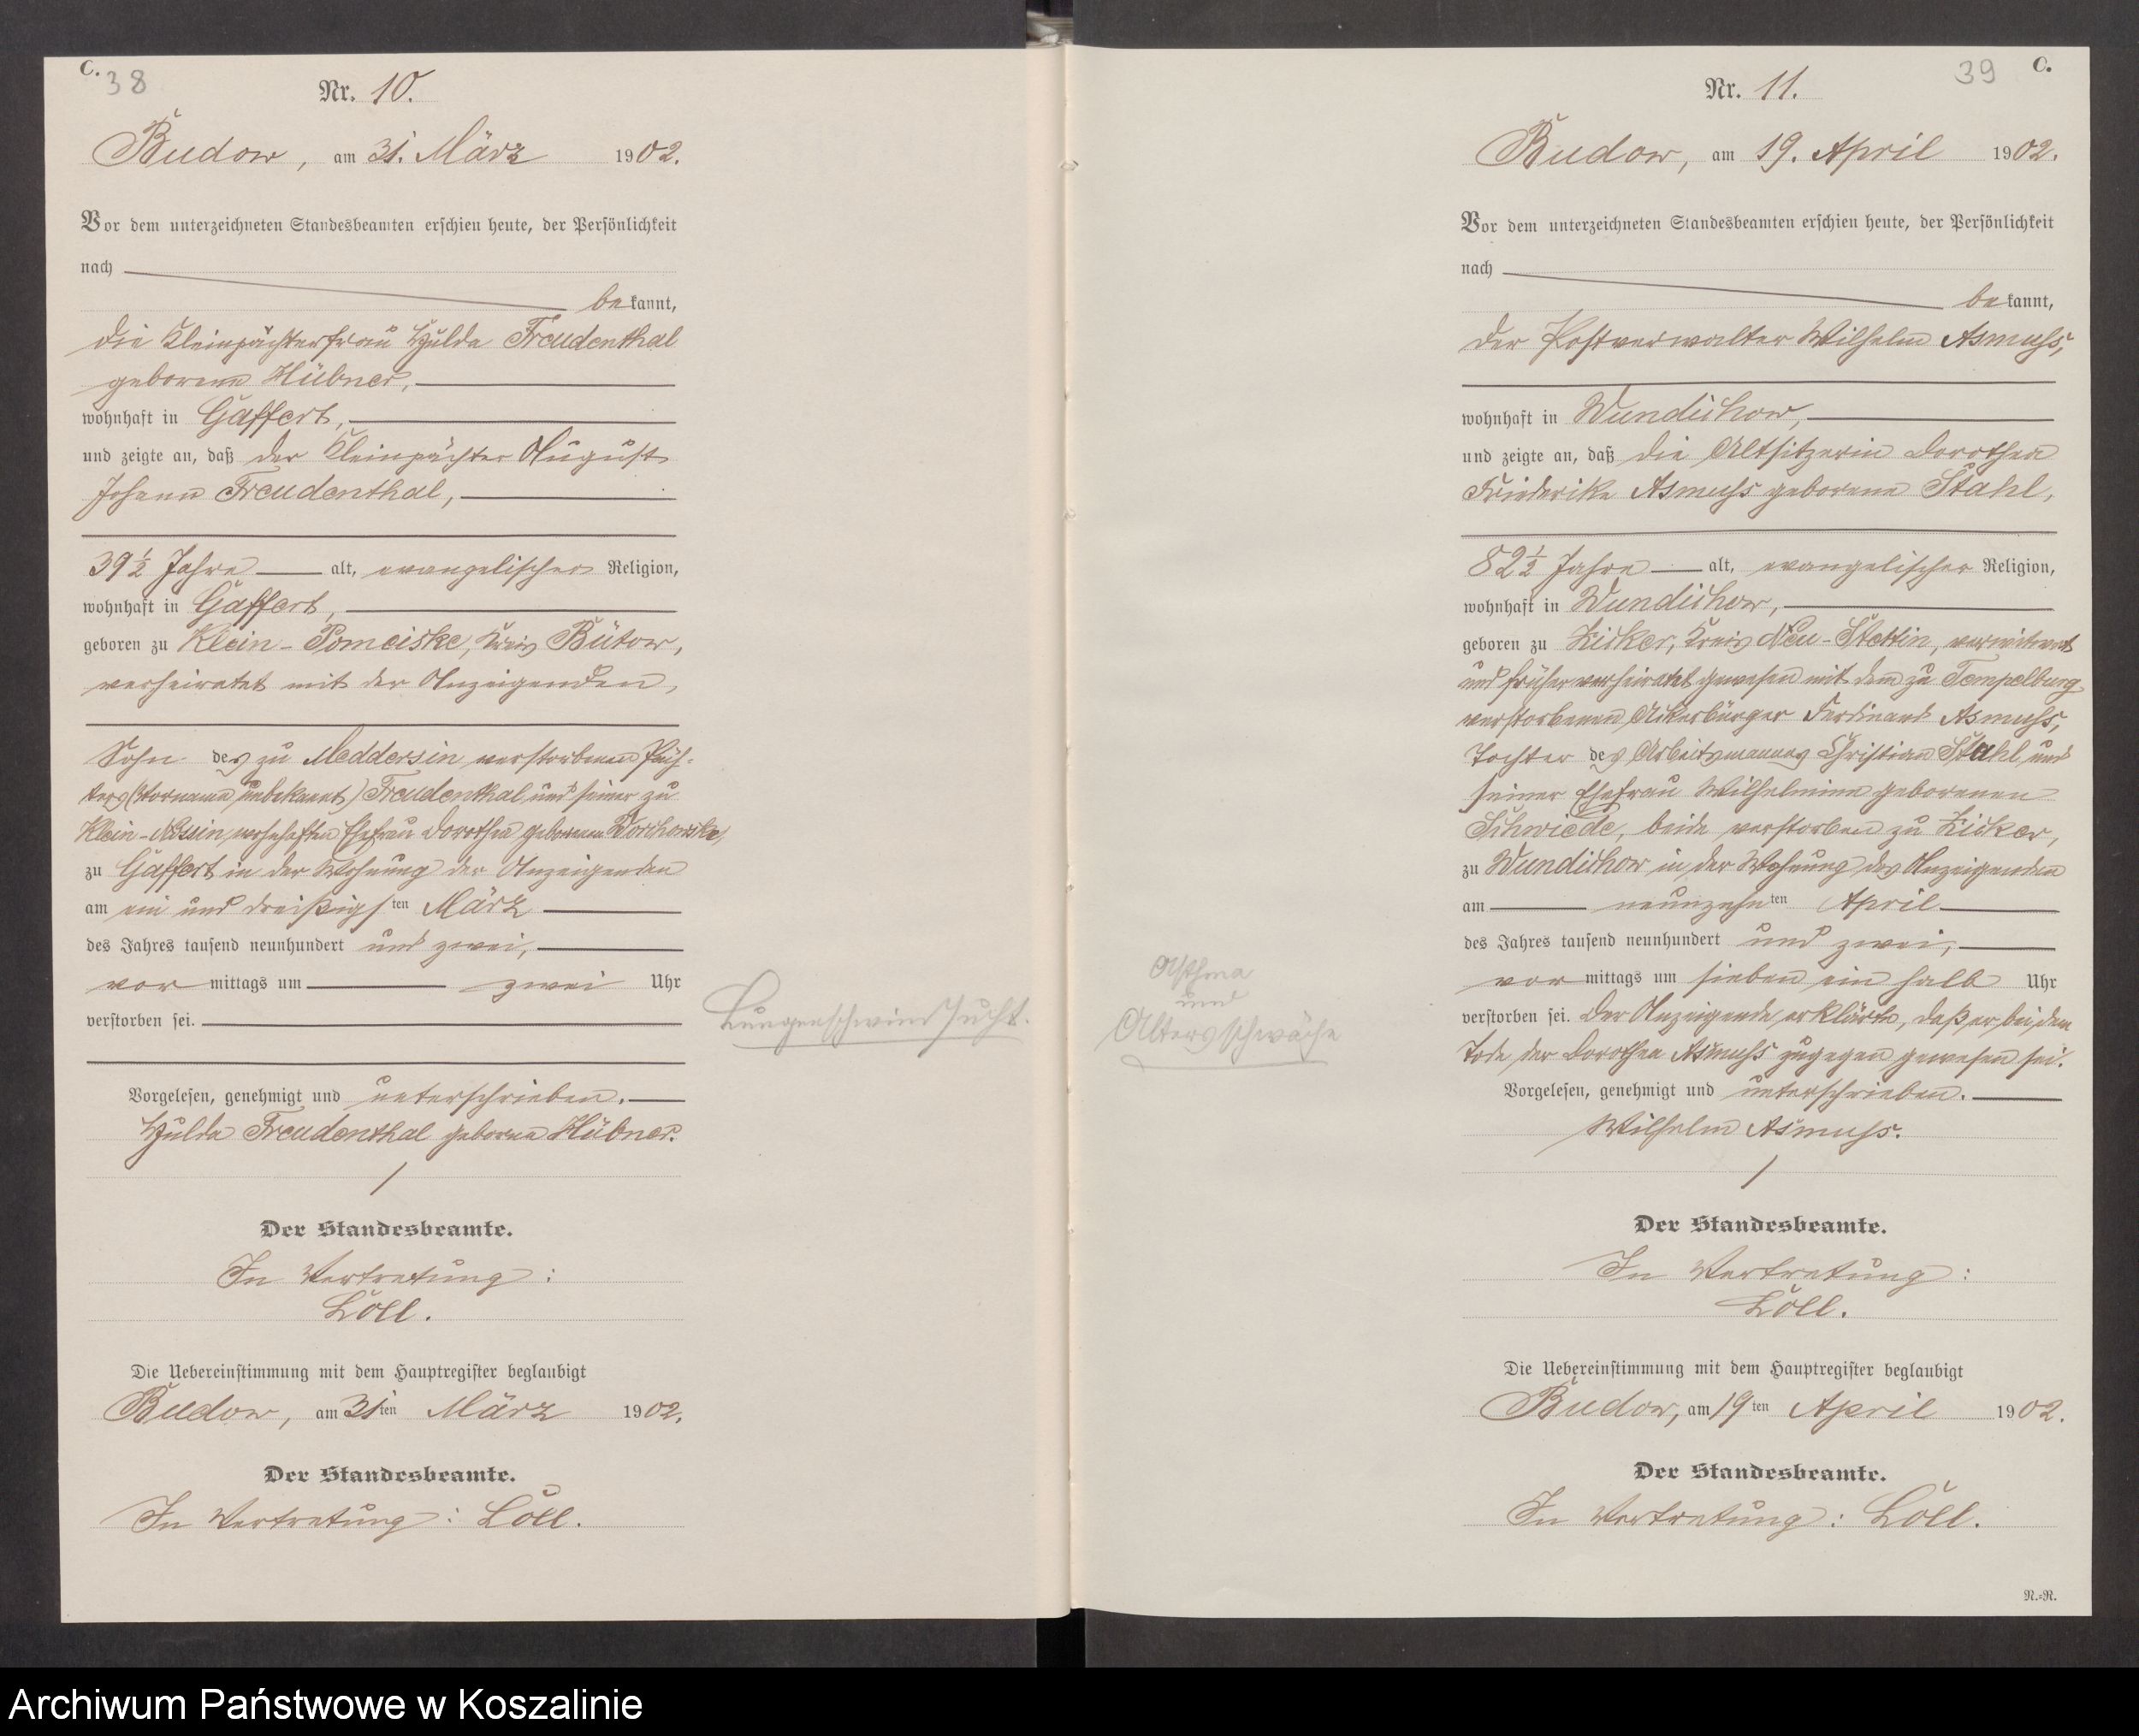 C.
38
Nr. 10.
Budow, am 31. März 1902.
Vor dem unterzeichneten Standesbeamten erschien heute, der Persönlichkeit
nach
bekannt,
die Kleinpächterfrau Hulda Freudenthal
geborene Hübner,
wohnhaft in Gaffert,
und zeigte an, daß der Kleinpächter August
Johann Freudenthal,
39 1/2 Jahre alt, evangelischer Religion,
wohnhaft in Gaffert,
geboren zu Klein-Pomeiske, Kreis Bütow,
verheiratet mit der Anzeigenden,
Sohn des zu Meddersin verstorbenen Päch-
ters (Vorname unbekannt) Freudenthal und seiner zu
Klein-Nossin wohnhaften Ehefrau Dorothea geborenen
zu Gaffert in der Wohnung der Anzeigenden
am ein und dreißigsten März
des Jahres tausend neunhundert und zwei,
vor mittags um zwei Uhr
verstorben sei.
Vorgelesen, genehmigt und unterschrieben.
Hulda Freudenthal geborene Hübner.
Der Standesbeamte.
In Vertretung:
Löll.
Die Uebereinstimmung mit dem Hauptregister beglaubigt
Budow, am 31ten März 1902.
Der Standesbeamte.
In Vertretung: Löll.
Lungenschwindsucht.
39
C.
Nr. 11.
Budow, am 19. April 1902.
Vor dem unterzeichneten Standesbeamten erschien heute, der Persönlichkeit
nach
bekannt,
der Postverwalter Wilhelm Asmuss,
wohnhaft in Wundichow,
und zeigte an, daß die Altsitzerin Dorothea
Friederike Asmuss geborene Stahl,
82 1/2 Jahre alt, evangelischer Religion,
wohnhaft in Wundichow,
geboren zu Zicker, Kreis Neu-Stettin, verwitwet
und früher verheiratet gewesen mit dem zu Tempelburg
verstorbenen Ackerbürger Ferdinand Asmuss,
Tochter des Arbeitsmannes Christian Stahl und
seiner Ehefrau Wilhelmine geborenen
Schwiede, beide verstorben zu Zicker,
zu Wundichow in der Wohnung des Anzeigenden
am neunzehnten April
des Jahres tausend neunhundert und zwei,
vor mittags um sieben ein halb Uhr
verstorben sei. Der Anzeigende erklärte, daß er bei dem
Tode der Dorothea Asmuss zugegen gewesen sei.
Vorgelesen, genehmigt und unterschrieben.
Wilhelm Asmuss.
Der Standesbeamte.
In Vertretung:
Löll.
Die Uebereinstimmung mit dem Hauptregister beglaubigt
Budow, am 19ten April 1902.
Der Standesbeamte.
In Vertretung: Löll.
Asthma
und
Altersschwäche
N.=N.
Archiwum Państwowe w Koszalinie